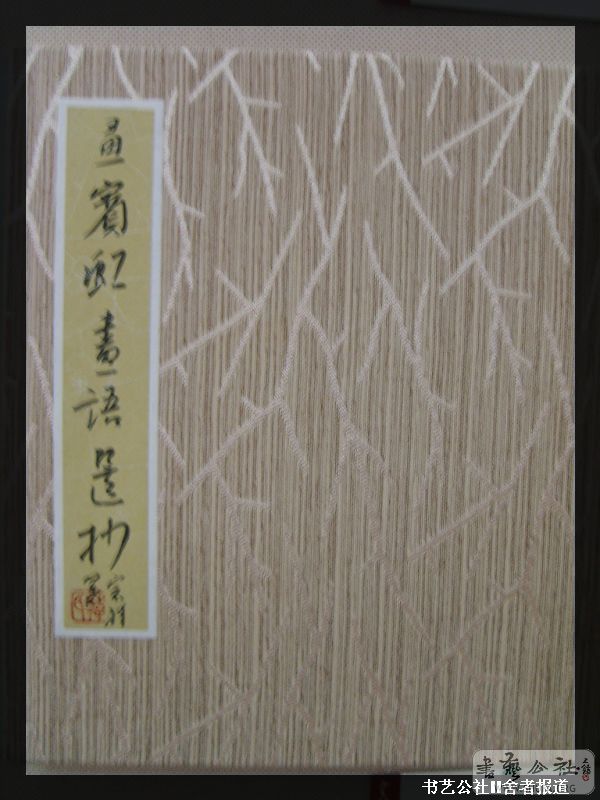 黃賓虹畫語選抄
書藝公社
书艺公社II舍者报道